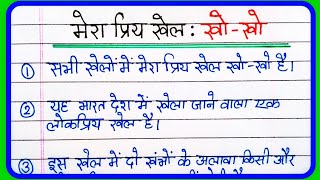 मेरा प्रिय खेल : खो-खो
① सभी खेलों में मेरा प्रिय खेल खो-खो है।
② यह भारत देश में खेला जाने वाला एक
लोकप्रिय खेल है।
③ इस खेल में दो खंभों के अलावा किसी और